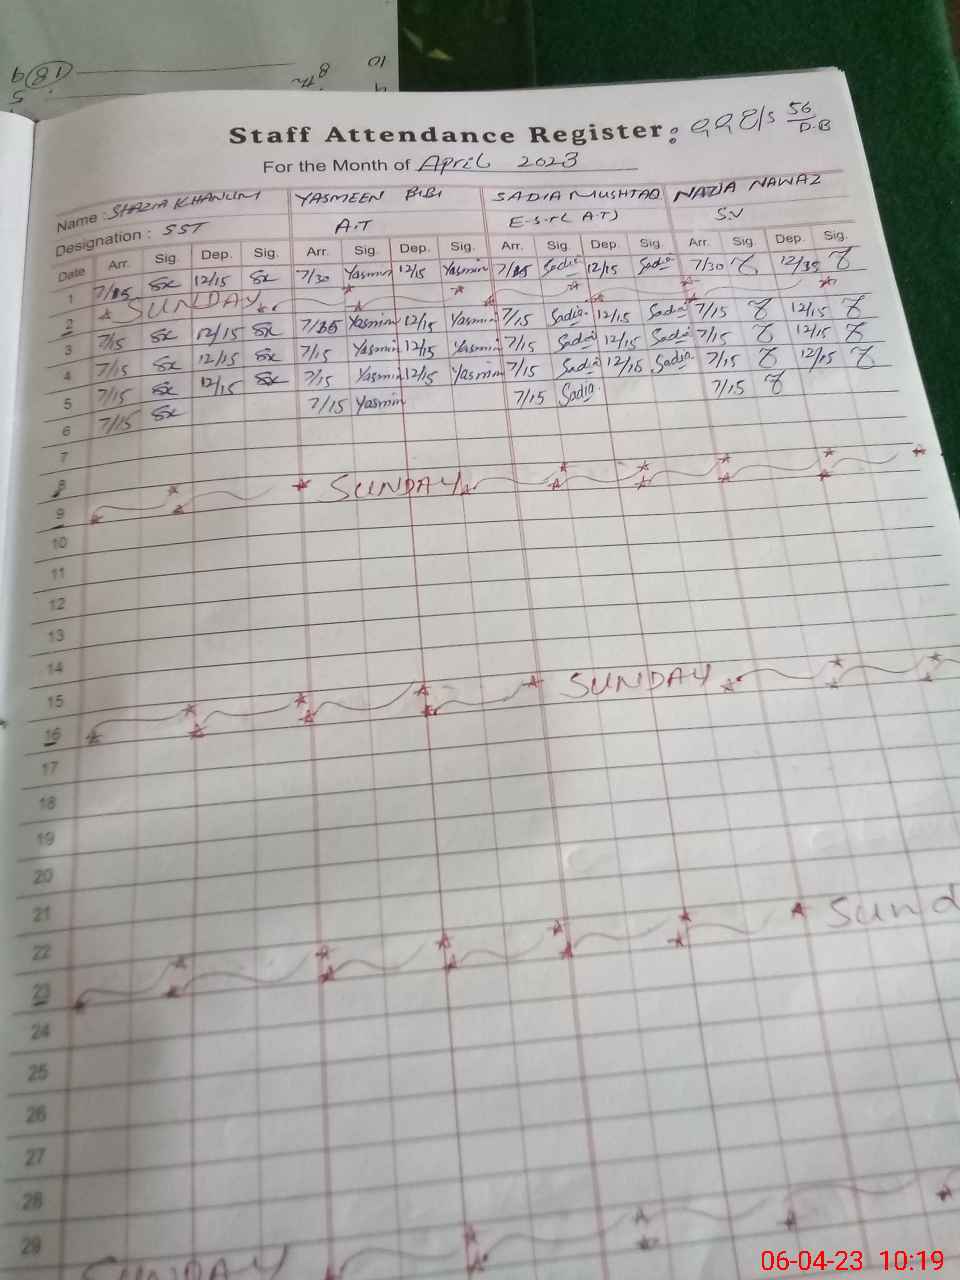 189
5
8
10
Staff Attendance Register: GGES 56/D.B
For the Month of April 2023
Name: SHAZIA KHANUM YASMEEN BIBI SADIA MUSHTAQ NAZIA NAWAZ
Designation: SST A.T E.S.T( A.T) S.V
Date Arr. Sig. Dep. Sig. Arr. Sig. Dep. Sig. Arr. Sig. Dep. Sig. Arr. Sig. Dep. Sig.
1 7/15 12/15 7/30 Yasmin 12/15 Yasmin 7/15 Sadia 12/15 Sadia 7/30 12/35
2 SUNDAY
3 7/15 12/15 7/15 Yasmin 12/15 Yasmin 7/15 Sadia 12/15 Sadia 7/15 12/15
4 7/15 12/15 7/15 Yasmin 12/15 Yasmin 7/15 Sadia 12/15 Sadia 7/15 12/15
5 7/15 12/15 7/15 Yasmin 12/15 Yasmin 7/15 Sadia 12/15 Sadia 7/15 12/15
6 7/15 7/15 Yasmin 7/15 Sadia 7/15
7
8
9 SUNDAY
10
11
12
13
14
15
16 SUNDAY
17
18
19
20
21
22
23 Sund
24
25
26
27
28
29
SUNDAY
06-04-23 10:19